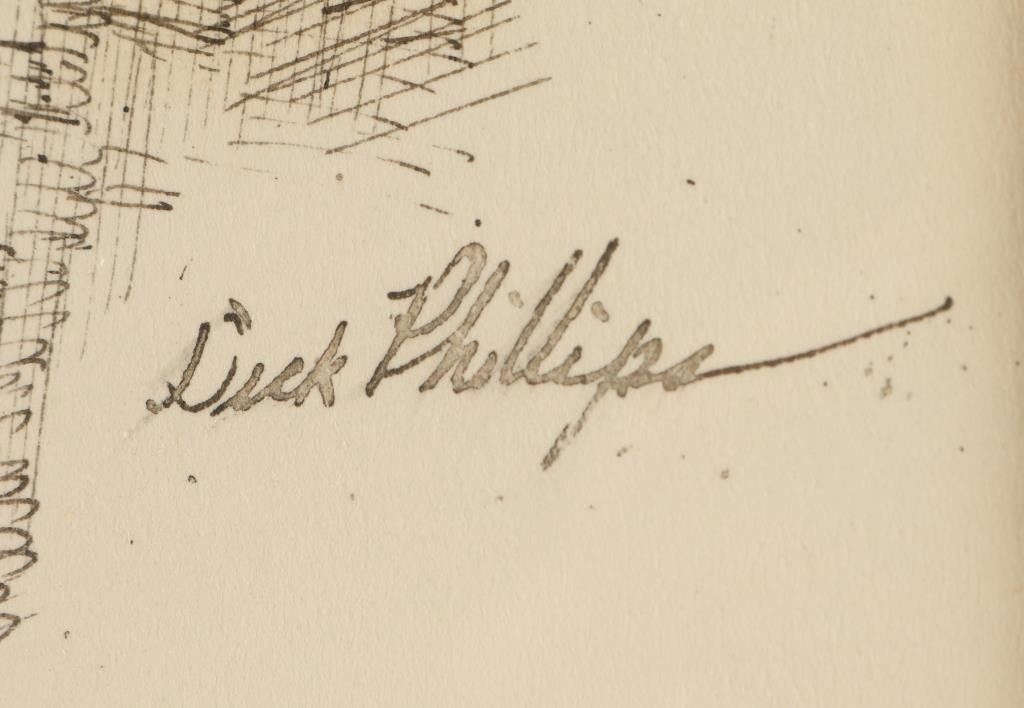 Dick Phillips